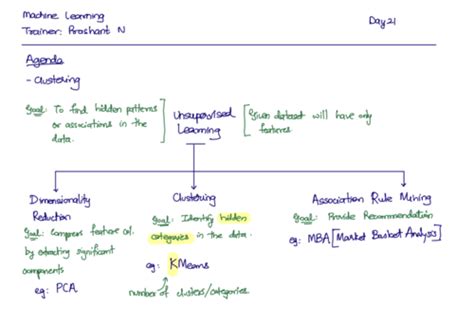 Machine Learning
Trainer: Prashant N
Day 21
Agenda
- Clustering
Goal: To find hidden patterns
or associations in the
data.
Unsupervised
Learning
Given dataset will have only
features.
Dimensionality
Reduction
Goal: Compress feature col.
by extracting significant
components
eg: PCA
Clustering
Goal: Identify hidden
categories in the data.
eg: KMeans
number of clusters/categories
Association Rule Mining
Goal: Provide Recommendation
eg: MBA [Market Basket Analysis]